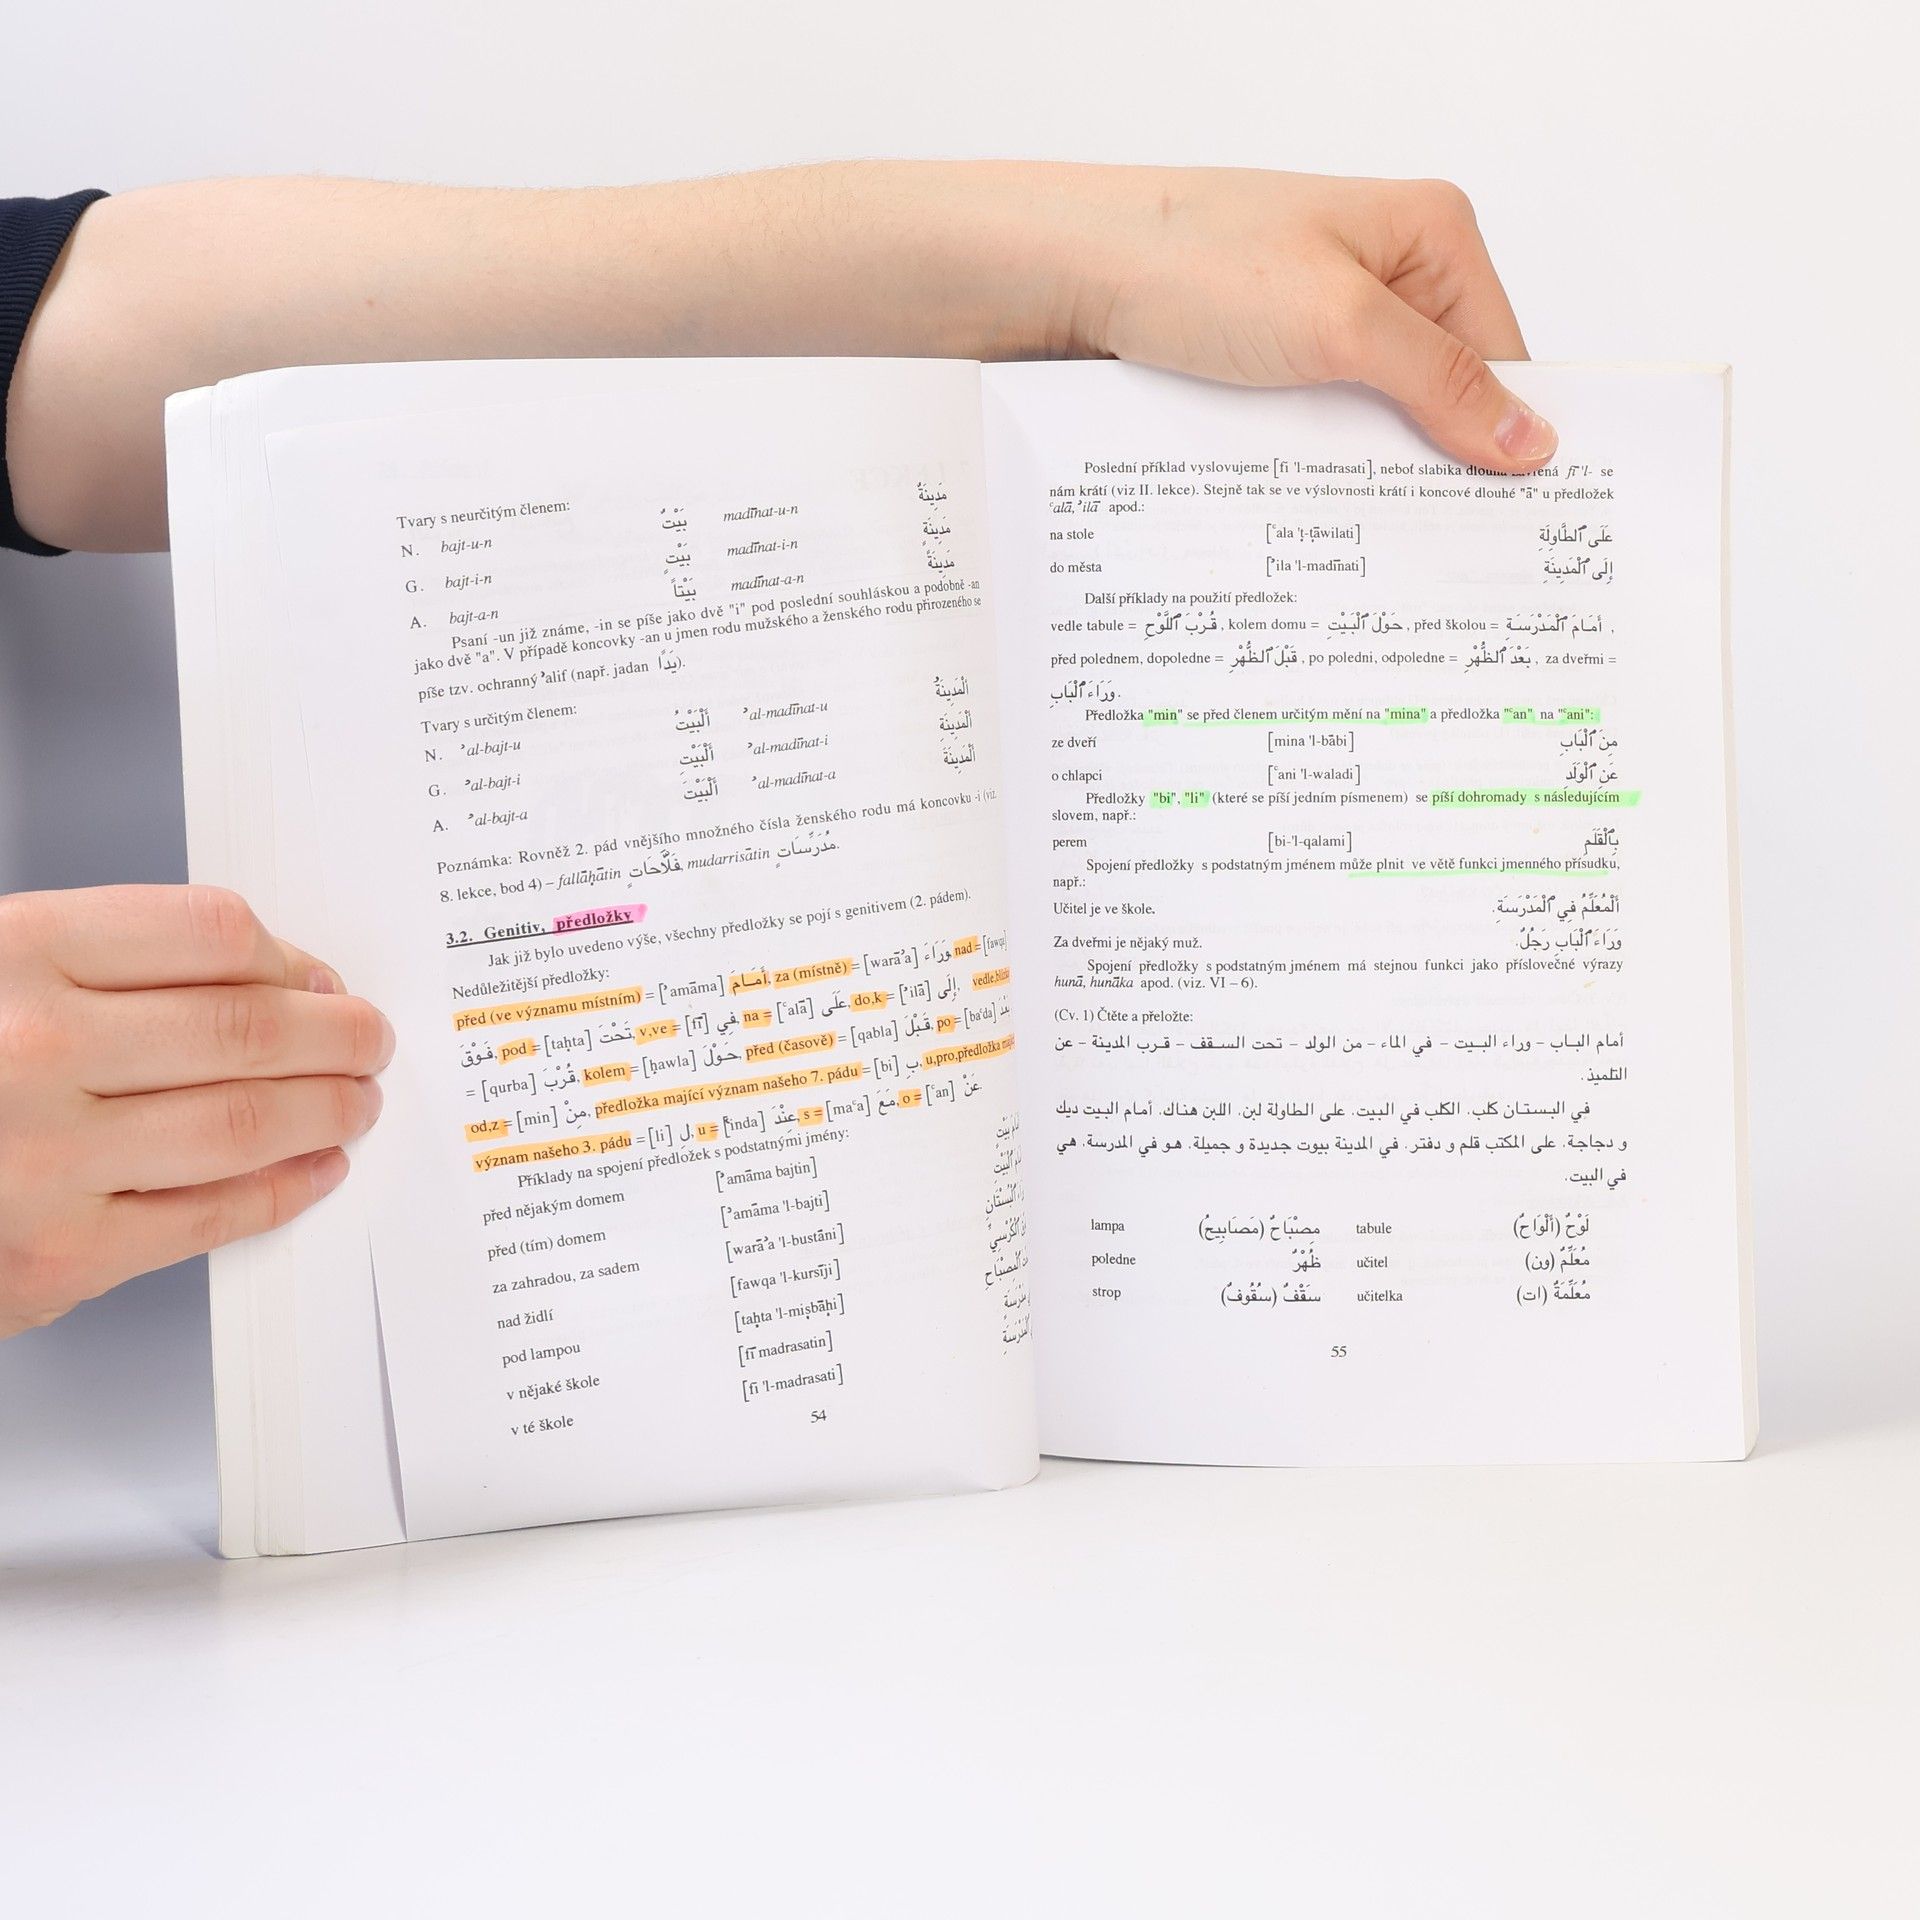 Tvary s neurčitým členem:
N. bajt-u-n بَيْتٌ madīnat-u-n مَدِينَةٌ
G. bajt-i-n بَيْتٍ madīnat-i-n مَدِينَةٍ
A. bajt-a-n بَيْتاً madīnat-a-n مَدِينَةً
Psaní -un již známe, -in se píše jako dvě "i" pod poslední souhláskou a podobně -an
jako dvě "a". V případě koncovky -an u jmen rodu mužského a ženského rodu přirozeného se
píše tzv. ochranný ʾalif (např. jadan يَدًا).
Tvary s určitým členem:
N. ʾal-bajt-u اَلْبَيْتُ ʾal-madīnat-u اَلْمَدِينَةُ
G. ʾal-bajt-i اَلْبَيْتِ ʾal-madīnat-i اَلْمَدِينَةِ
A. ʾal-bajt-a اَلْبَيْتَ ʾal-madīnat-a اَلْمَدِينَةَ
Poznámka: Rovněž 2. pád vnějšího množného čísla ženského rodu má koncovku -i (viz
8. lekce, bod 4) – fallāḥātin فَلَّاحَاتٍ, mudarrisātin مُدَرِّسَاتٍ.
3.2. Genitiv, předložky
Jak již bylo uvedeno výše, všechny předložky se pojí s genitivem (2. pádem).
Nedůležitější předložky:
před (ve významu místním) = [ʾamāma] أَمَـامَ, za (místně) = [warāʾa] وَرَاءَ, nad = [fawqa]
فَـوْقَ, pod = [taḥta] تَحْتَ, v,ve = [fī] فِي, na = [ʿalā] عَلَى, do,k = [ʾilā] إِلَى,
= [qurba] قُرْبَ, kolem = [ḥawla] حَوْلَ, před (časově) = [qabla] قَبْلَ, po = [baʿda] بَعْدَ
od,z = [min] مِنْ, předložka mající význam našeho 7. pádu = [bi] بِ, u,pro,předložka
význam našeho 3. pádu = [li] لِ, u = [ʿinda] عِنْدَ, s = [maʿa] مَعَ, o = [ʿan] عَنْ.
Příklady na spojení předložek s podstatnými jmény:
před nějakým domem [ʾamāma bajtin]
před (tím) domem [ʾamāma 'l-bajti]
za zahradou, za sadem [warāʾa 'l-bustāni]
nad židlí [fawqa 'l-kursīji]
pod lampou [taḥta 'l-miṣbāḥi]
v nějaké škole [fī madrasatin]
v té škole [fī 'l-madrasati]
54
Poslední příklad vyslovujeme [fi 'l-madrasati], neboť slabika dlouhá fī 'l- se
nám krátí (viz II. lekce). Stejně tak se ve výslovnosti krátí i koncové dlouhé "ā" u předložek
ʿalā, ʾilā apod.:
na stole [ʿala 'ṭ-ṭāwilati] عَلَى ٱلطَّاوِلَةِ
do města [ʾila 'l-madīnati] إِلَى ٱلْمَدِينَةِ
Další příklady na použití předložek:
vedle tabule = قُـرْبَ ٱللَّوْحِ, kolem domu = حَوْلَ ٱلْبَـيْتِ, před školou = أَمَـامَ ٱلْمَدْرَسَـةِ,
před polednem, dopoledne = قَبْلَ ٱلظُّهْرِ, po poledni, odpoledne = بَعْدَ ٱلظُّهْرِ, za dveřmi =
وَرَاءَ ٱلْبَابِ.
Předložka "min" se před členem určitým mění na "mina" a předložka "ʿan" na "ʿani":
ze dveří [mina 'l-bābi] مِنَ ٱلْبَابِ
o chlapci [ʿani 'l-waladi] عَنِ ٱلْوَلَدِ
Předložky "bi", "li" (které se píší jedním písmenem) se píší dohromady s následujícím
slovem, např.:
perem [bi-'l-qalami] بِٱلْقَلَمِ
Spojení předložky s podstatným jménem může plnit ve větě funkci jmenného přísudku,
např.:
Učitel je ve škole. اَلْمُعَلِّمُ فِي ٱلْمَدْرَسَةِ.
Za dveřmi je nějaký muž. وَرَاءَ ٱلْبَابِ رَجُلٌ.
Spojení předložky s podstatným jménem má stejnou funkci jako příslovečné výrazy
hunā, hunāka apod. (viz. VI – 6).
(Cv. 1) Čtěte a přeložte:
أمام البـاب – وراء البـيت – في الماء – من الولد – تحت السـقف – قـرب المدينة – عن
التلميذ.
في البسـتان كلب. الكلب في البيت. على الطاولة لبن. اللبن هناك. أمام البـيت ديك
و دجاجة. على المكتب قلم و دفتر. في المدينة بيوت جديدة و جميلة. هـو في المدرسة. هي
في البيت.
lampa مِصْبَاحٌ (مَصَابِيحُ) tabule لَوْحٌ (أَلْوَاحٌ)
poledne ظُهْرٌ učitel مُعَلِّمٌ (ون)
strop سَقْفٌ (سُقُوفٌ) učitelka مُعَلِّمَةٌ (ات)
55